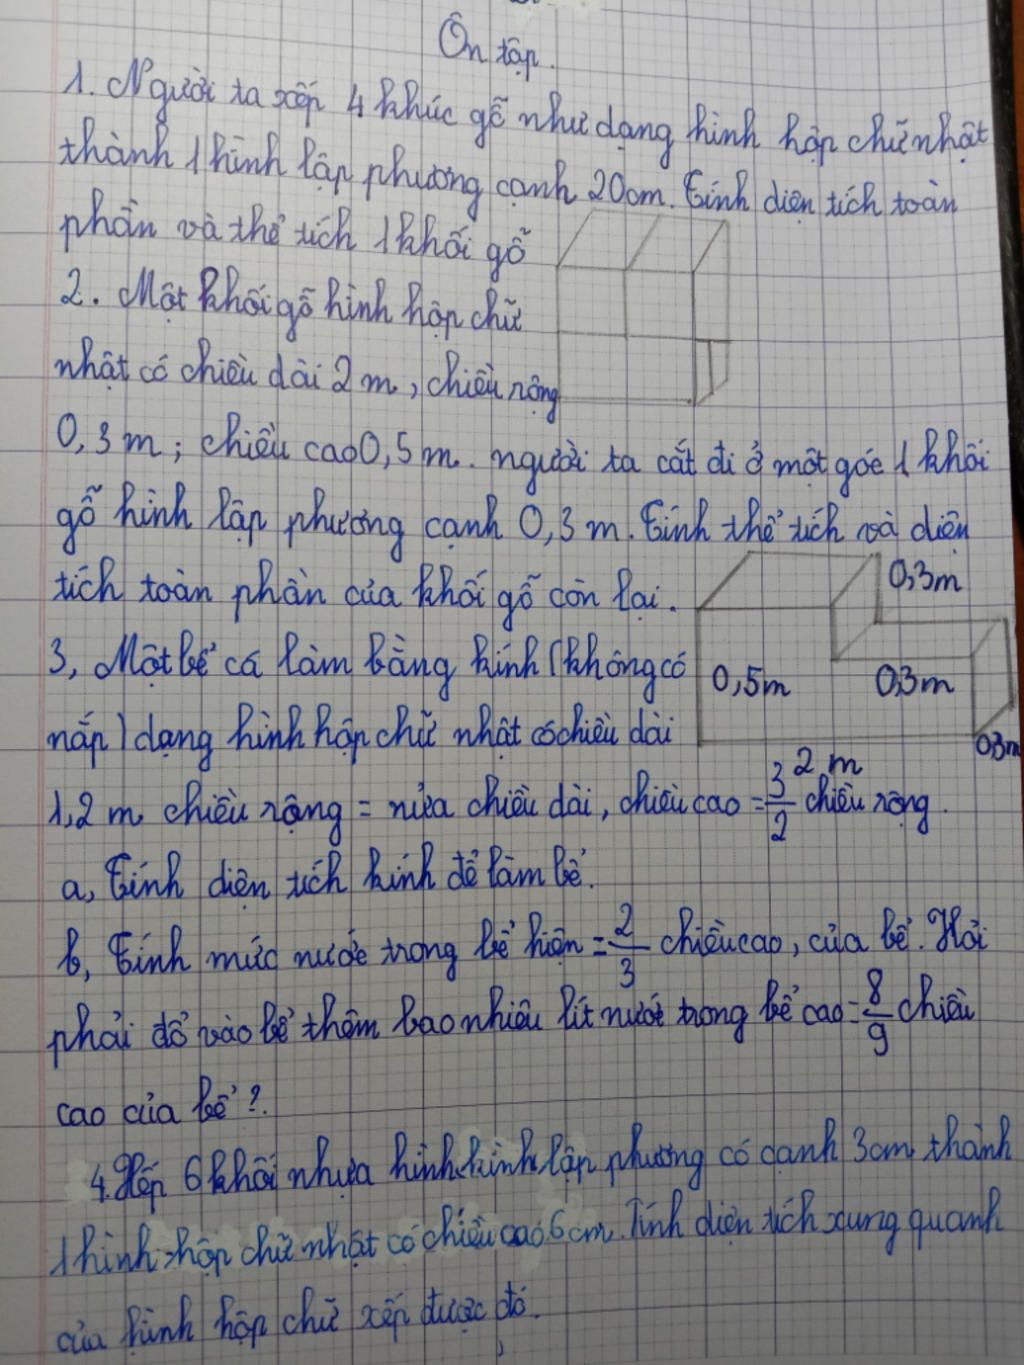 Ôn tập.
1. Người ta xếp 4 khúc gỗ như dạng hình hộp chữ nhật
thành 1 hình lập phương cạnh 20cm. Tính diện tích toàn
phần và thể tích 1 khối gỗ
2. Một khối gỗ hình hộp chữ
nhật có chiều dài 2 m, chiều rộng
0,3 m; chiều cao 0,5 m. người ta cắt đi ở một góc 1 khối
gỗ hình lập phương cạnh 0,3 m. Tính thể tích và diện
tích toàn phần của khối gỗ còn lại.
0,3m
0,5m
0,3m
0,3m
2 m
3, Một bể cá làm bằng kính (không có
nắp) dạng hình hộp chữ nhật có chiều dài
1,2 m chiều rộng = nửa chiều dài, chiều cao = 3/2 chiều rộng.
a, Tính diện tích kính để làm bể.
b, Tính mức nước trong bể hiện = 2/3 chiều cao, của bể. Hỏi
phải đổ vào bể thêm bao nhiêu lít nước trong bể cao = 8/9 chiều
cao của bể?
4. Xếp 6 khối nhựa hình hình lập phương có cạnh 3cm thành
1 hình hộp chữ nhật có chiều cao 6cm. Tính diện tích xung quanh
của hình hộp chữ xếp được đó.